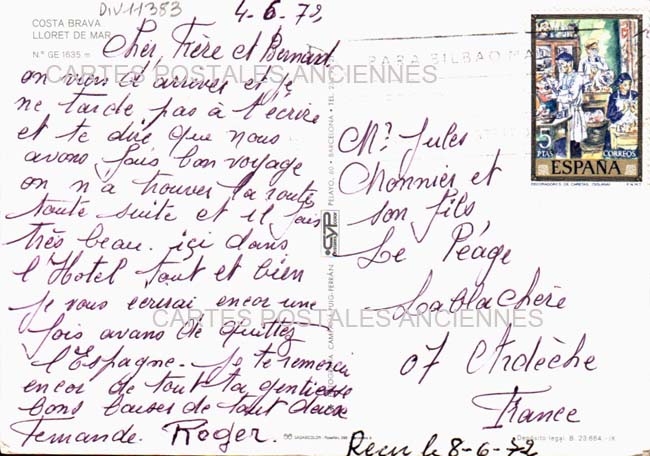 DIV11383
COSTA BRAVA
LLORET DE MAR
N.º GE 1635
4-6-72
Cher, Frère et Bernard
on viens d'arriver et je
ne tarde pas à t'écrire
et te dire que nous
avons fais bon voyage
on n'a trouver la route
toute suite et il fais
très beau. içi dans
l'Hotel tout et bien
je vous ecrirai encor une
fois avans de quittez
l'Espagne. je te remerci
encor de tout ta gentiesse
bons baiser de tout deux
Fernande. Roger.
CARTES POSTALES ANCIENNES
CARTES POSTALES ANCIENNES
PELAYO, 60 - BARCELONA
PUIG-FERRÁN
PARA BILBAO
5
PTAS
CORREOS
ESPAÑA
Mr. Jules
Monnier et
son fils
Le Péage
Lablachère
07 Ardèche
France
Depósito legal B. 23.664 - IX
Reçu le 8-6-72